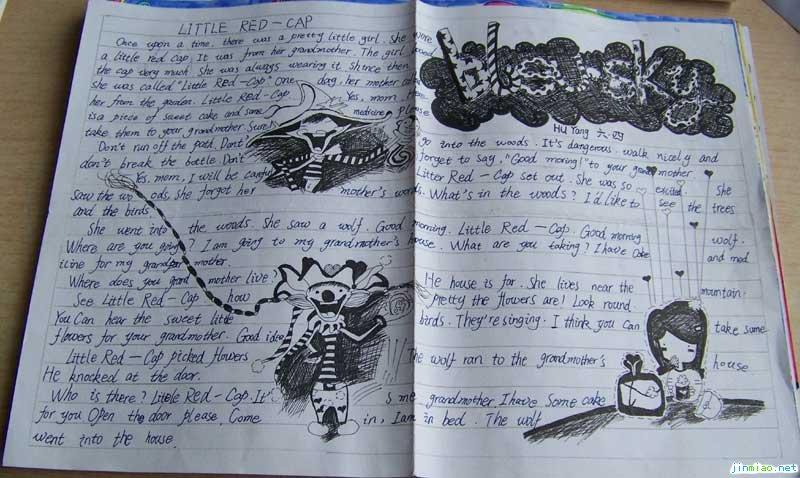 LITTLE RED-CAP
Hu Yang 六.四
Once upon a time, there was a pretty little girl. She wore
a little red cap. It was from her grandmother. The girl loved
the cap very much. She was always wearing it. Shince then
she was called "Little Red-Cap" One day, her mother
her from the garden. Little Red-Cap Yes, mom. Here
is a piece of sweet cake and some medicine, please
take them to your grandmother. Sure!
Don't run off the path. Don't go into the woods. It's dangerous. walk nicely and
don't break the bottle. Don't forget to say, "Good moring!" to your grandmother
Yes, mom, I will be careful Litter Red-Cap set out. She was so exited. She
saw the wo ods, she forgot her mother's words. What's in the woods? I'd like to see the trees
and the birds.
She went into the woods. She saw a wolf. Good morning. Little Red-Cap. Good morning wolf.
Where are you going? I am going to my grandmother's house. What are you taking? I have Cake and med
icine for my grand mother.
Where does you grand mother live? He house is far. She lives near the mountain.
See Little Red-Cap how Pretty the flowers are! Look round
You Can hear the sweet little birds. They're singing. I think you can take some
flowers for your grandmother. Good idea
Little Red-Cap picked flowers The wolf ran to the grandmother's house
He knocked at the door.
Who is there? Little Red-Cap. It's me grandmother I have Some cake
for you Open the door please. Come in, I am in bed. The wolf
went into the house.
jinmiao.net